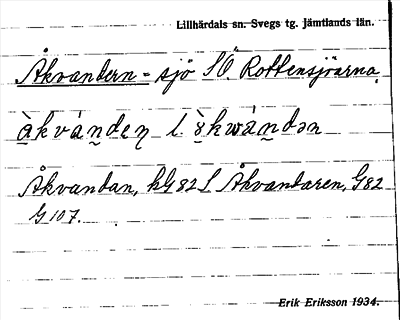 Lillhärdals sn. Svegs tg. jämtlands län.
Åkvandern = sjö SO. Rottensjöarna
àkvánden l. òkwàndən
Åkvandan, hG 82 S Åkvandaren, G82
G 107.
Erik Eriksson 1934.